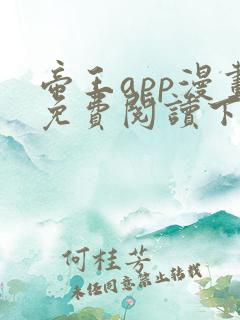 帝王app漫畫
免費閱讀下
何桂芳
未经同意禁止转载